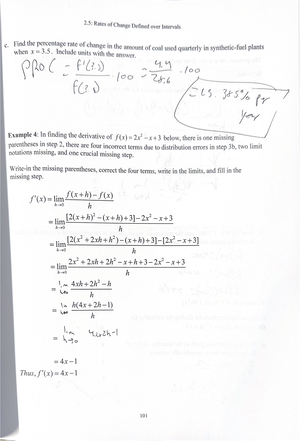 2.5: Rates of Change Defined over Intervals
c. Find the percentage rate of change in the amount of coal used quarterly in synthetic-fuel plants
when x = 3.5. Include units with the answer.
PROC = f'(3.5)/f(3.5) · 100 = 4.4/28.6 · 100
= 15.385% per
year
Example 4: In finding the derivative of f(x) = 2x² − x + 3 below, there is one missing
parentheses in step 2, there are four incorrect terms due to distribution errors in step 3b, two limit
notations missing, and one crucial missing step.
Write-in the missing parentheses, correct the four terms, write in the limits, and fill in the
missing step.
f'(x) = lim h→0 f(x+h) − f(x) / h
= lim h→0 [2(x+h)² − (x+h) + 3] − 2x² − x + 3 / h
= lim h→0 [2(x² + 2xh + h²) − (x+h) + 3] − [2x² − x + 3] / h
= lim h→0 2x² + 2xh + 2h² − x + h + 3 − 2x² − x + 3 / h
= lim h→0 4xh + 2h² − h / h
= lim h→0 h(4x + 2h − 1) / h
= lim h→0 4x+2h-1
= 4x − 1
Thus, f'(x) = 4x − 1
101